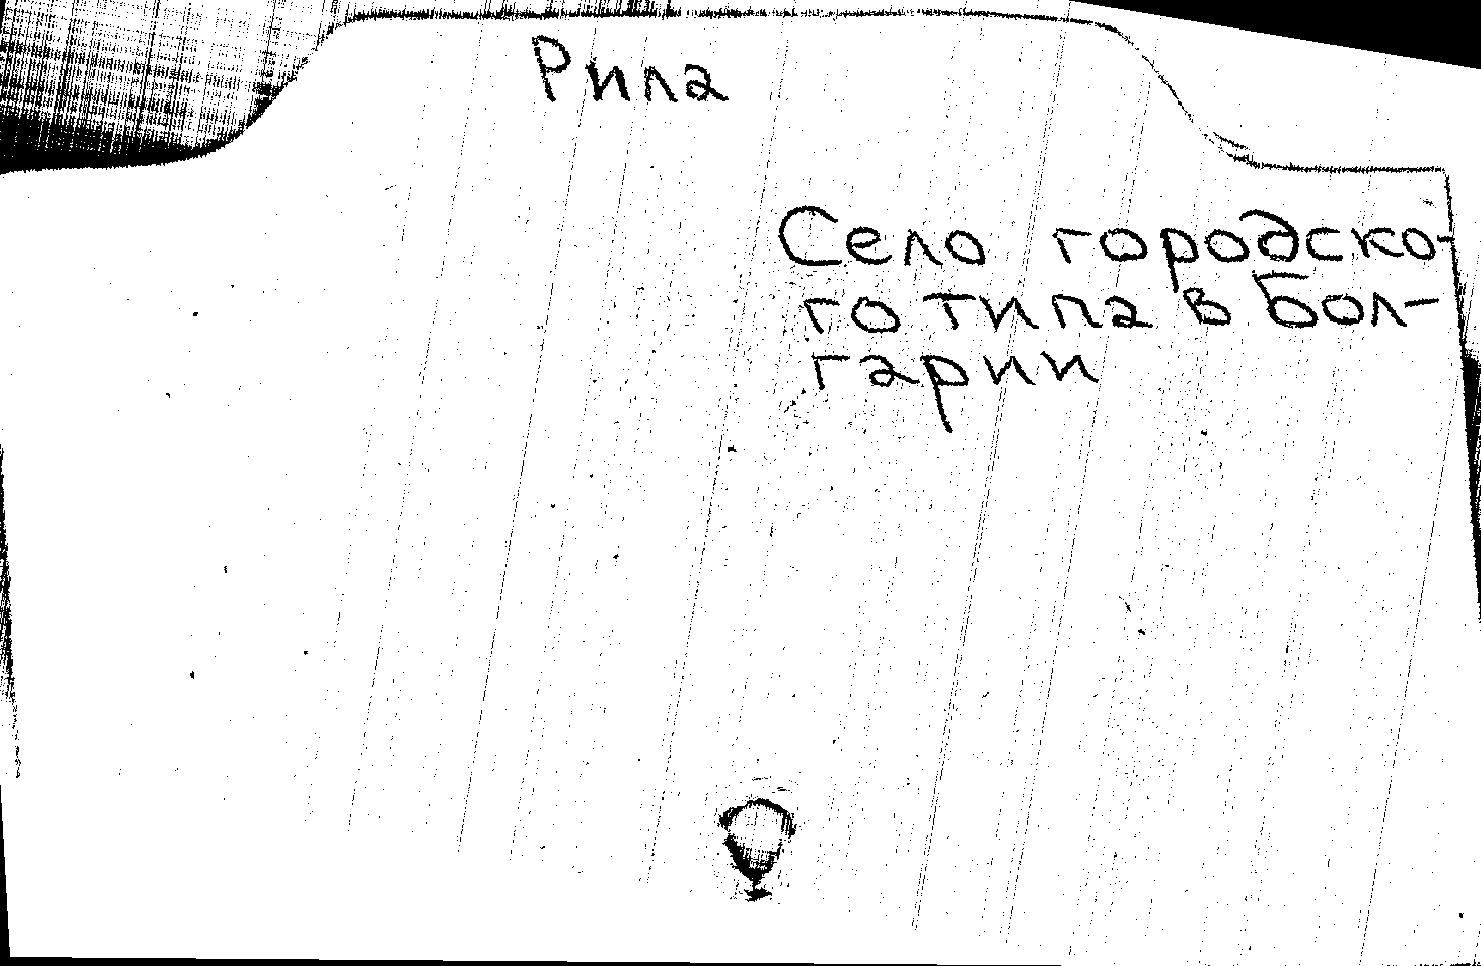 Рила
Село городско-
го типа в Бол-
гарии